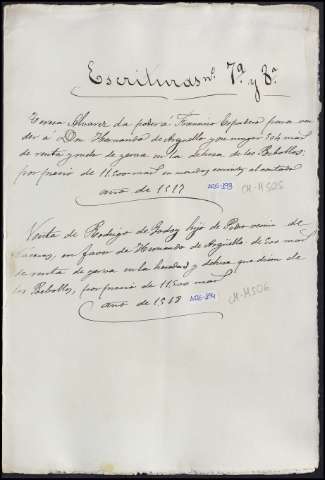 Escrituras nº. 7ª y 8ª
Teresa Alvarez da poder á Francisco Cepedero para ven
der á Don Hernando de Argüello, 504 mrs
de renta y de yerva en la dehesa de los Ceballos,
por precio de 11.500 mrs al contado
año de 1517 ADE-293 CM-MS05
Venta de Rodrigo de Godoy hijo de Pedro vecino de
Caceres, en favor de Hernando de Argüello de 500 mrs
de renta de yerva en la heredad y dehesa que dicen de
los Ceballos, por precio de 11.500 mrs
año de 1518 ADE-294 CM-MS06